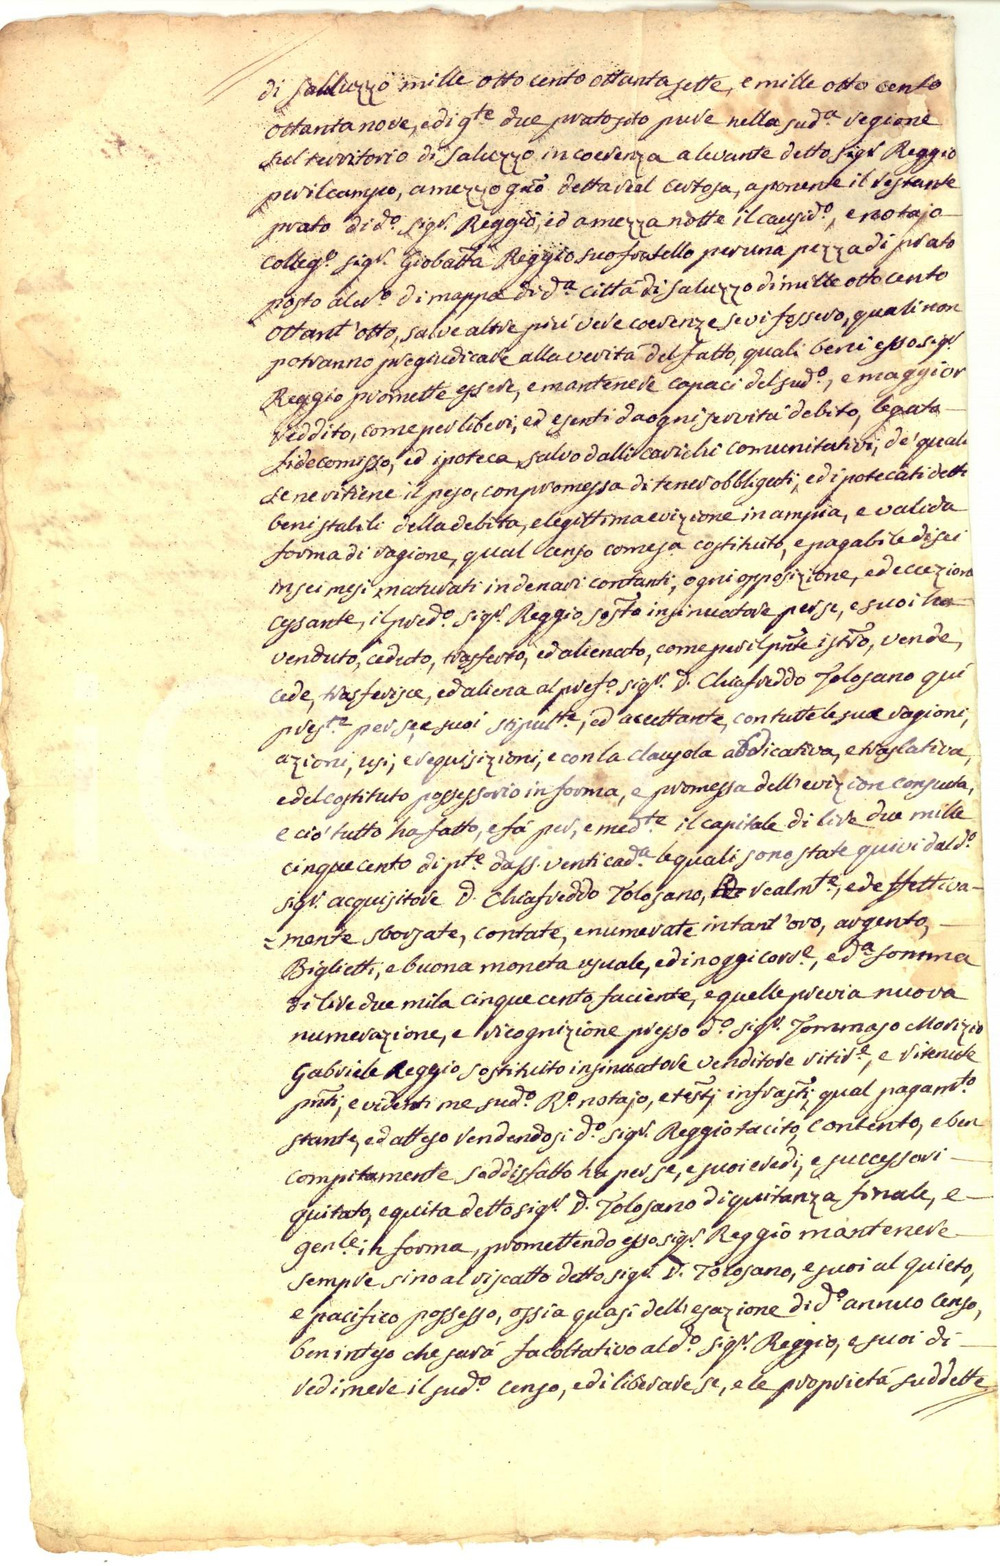 di Saluzzo mille otto cento ottanta sette, e mille otto cento
ottanta nove, ed i q.te due prato sito pure nella sud.a regione
sul territorio di Saluzzo, in coerenza a levante detto sig.r Reggio
per il campo, a mezzo gno detta vial Certosa, a ponente il restante
prato di d.o Sig.r Reggio, ed a mezza notte il causid.o, e notajo
colleg.o Sig.r Giobatta Reggio suo fratello per una pezza di prato
posto al n.o di mappa di d.a Città di Saluzzo di mille otto cento
ottant'otto, salve altre più vere coerenze se vi fossero, quali non
potranno pregiudicare alla verità del fatto, quali beni esso sig.r
Reggio promette essere, e mantenere capaci del sud.o, e maggior
reddito, come per liberi, ed esenti da ogni servitù debito, legato
fidecomisso, ed ipoteca, salvo dalli carichi comunitativi, de' quali
se ne ritiene il peso, con promessa di tener obbligati, ed ipotecati detti
beni stabili della debita, e legittima evizione in ampia, e valida
forma di ragione, qual censo come sa costituto, e pagabile di sei
in sei mesi maturati in denari contanti, ogni opposizione, ed eccezione
cessante, il pred.o Sig.r Reggio sosto insinuatore per se, e suoi ha
venduto, ceduto, trasferto, ed alienato, come per il pnte istro, vende,
cede, trasferisce, ed aliena al pref.o sig.r D. Chiafreddo Tolosano qui
pres.te per se, e suoi stipul.te, ed accettante, con tutte le sue ragioni,
azioni, usi, e requisizioni, e con la clausola abdicativa, e traslativa,
e del costituto possessorio in forma, e promessa dell'evizion consueta,
e ciò tutto ha fatto, e fà per, e med.te il capitale di lire due mille
cinque cento di p.te da ss. venti cad.a le quali sono state quivi dal d.o
sig.r acquisitore D. Chiafreddo Tolosano, realm.te, ed effettiva-
mente sborsate, contate, e numerate in tant'oro, argento,
Biglietti, e buona moneta usuale, ed in oggi corr.e, e d.a somma
di lire due mila cinque cento faciente, e quelle previa nuova
numerazione, e ricognizione presso d.o sig.r Tommaso Morizio
Gabriele Reggio sostituito insinuatore venditore ritir.e, e ritenute
pnti, e videnti me sud.o R.o notajo, e testj infrastti, qual pagam.to
stante, ed atteso rendendosi d.o sig.r Reggio tacito, contento, e ben
compitamente soddisfatto ha per se, e suoi eredi, e successori
quitato, e quita detto sig.r D. Tolosano di quitanza finale, e
gen.le in forma, promettendo esso sig.r Reggio mantenere
sempre sino al riscatto detto sig.r D. Tolosano, e suoi al quieto,
e pacifico possesso, ossia quasi dell'esazione di d.o annuo censo,
ben inteso che sarà facoltativo al d.o sig.r Reggio, e suoi di
redimere il sud.o censo, e di liberare se, e le proprietà suddette